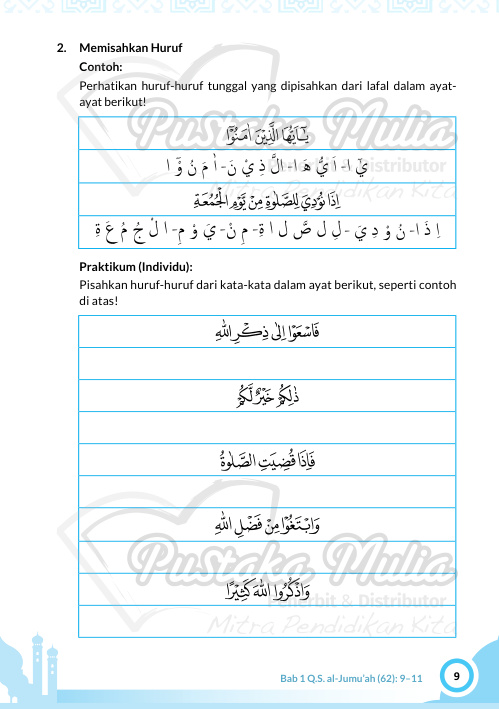 2. Memisahkan Huruf
Contoh:
Perhatikan huruf-huruf tunggal yang dipisahkan dari lafal dalam ayat-
ayat berikut!
يٰٓاَيُّهَا الَّذِيْنَ اٰمَنُوْٓا
يٰٓ ا - اَ يُّ هَ ا - ا لَّ ذِ يْ نَ - اٰ مَ نُ وْٓ ا
اِذَا نُوْدِيَ لِلصَّلٰوةِ مِنْ يَّوْمِ الْجُمُعَةِ
اِ ذَ ا - نُ وْ دِ يَ - لِ ل صَّ ل ا ةِ - مِ نْ - يَ وْ مِ - ا لْ جُ مُ عَ ةِ
Praktikum (Individu):
Pisahkan huruf-huruf dari kata-kata dalam ayat berikut, seperti contoh
di atas!
فَاسْعَوْا اِلٰى ذِكْرِ اللّٰهِ
ذٰلِكُمْ خَيْرٌ لَّكُمْ
فَاِذَا قُضِيَتِ الصَّلٰوةُ
وَابْتَغُوْا مِنْ فَضْلِ اللّٰهِ
وَاذْكُرُوا اللّٰهَ كَثِيْرًا
Pustaka Mulia
Penerbit & Distributor
Mitra Pendidikan Kita
Bab 1 Q.S. al-Jumu'ah (62): 9–11
9